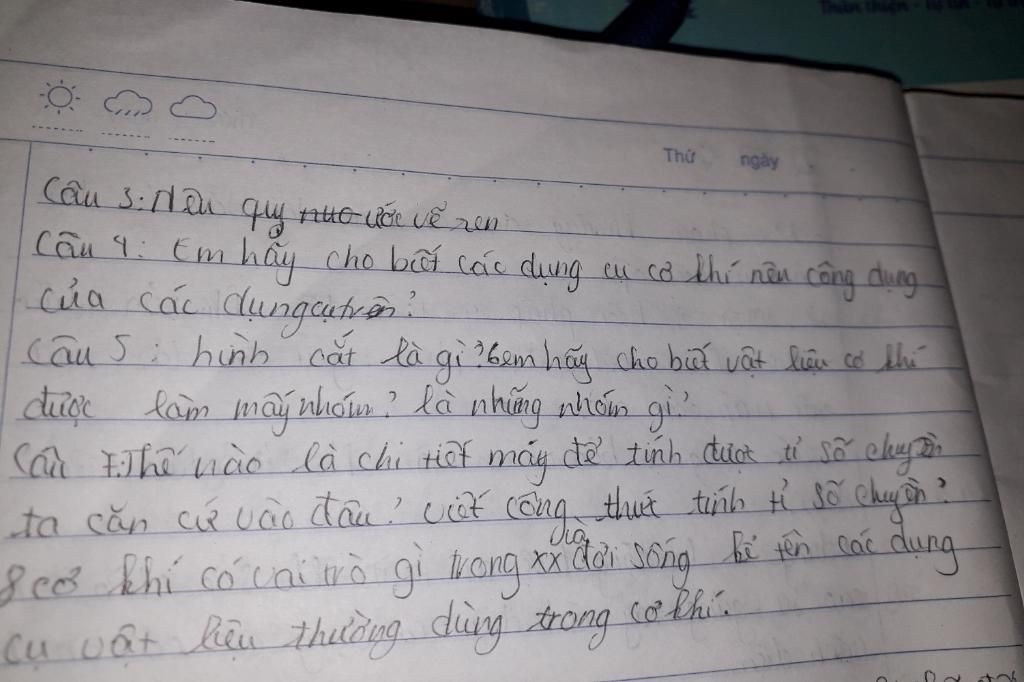 Thân thiện - Tự tin -
Thứ ngày
Câu 3: Nêu quy ước vẽ ren
Câu 4: Em hãy cho biết các dụng cụ cơ khí nêu công dụng
của các dụng cụ trên?
Câu 5: hình cắt là gì? 6 em hãy cho biết vật liệu cơ khí
được làm mấy nhóm? là những nhóm gì?
Câu 7: Thế nào là chi tiết máy để tính được tỉ số chuyền
ta căn cứ vào đâu? viết công thức tính tỉ số chuyền?
8 cơ khí có vai trò gì trong xx và đời sống kể tên các dụng
cụ vật liệu thường dùng trong cơ khí.